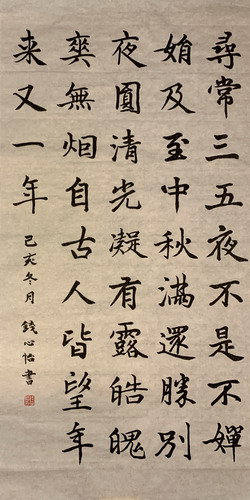 尋常三五夜不是不嬋
娟及至中秋滿還勝別
夜圓清光凝有露皓魄
爽無烟自古人皆望年
来又一年
己亥冬月 錢心怡書